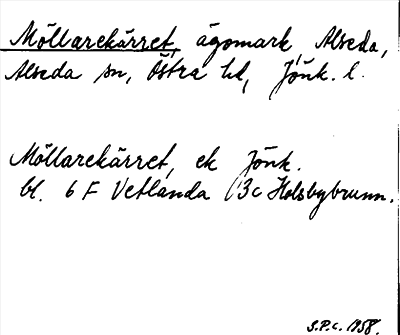 Möllarekärret, ägomark, Alseda,
Alseda sn, Östra hd, Jönk. l.
Möllarekärret, ek Jönk.
bl. 6 F Vetlanda (3c Holsbybrunn.
S.P.c. 1958.